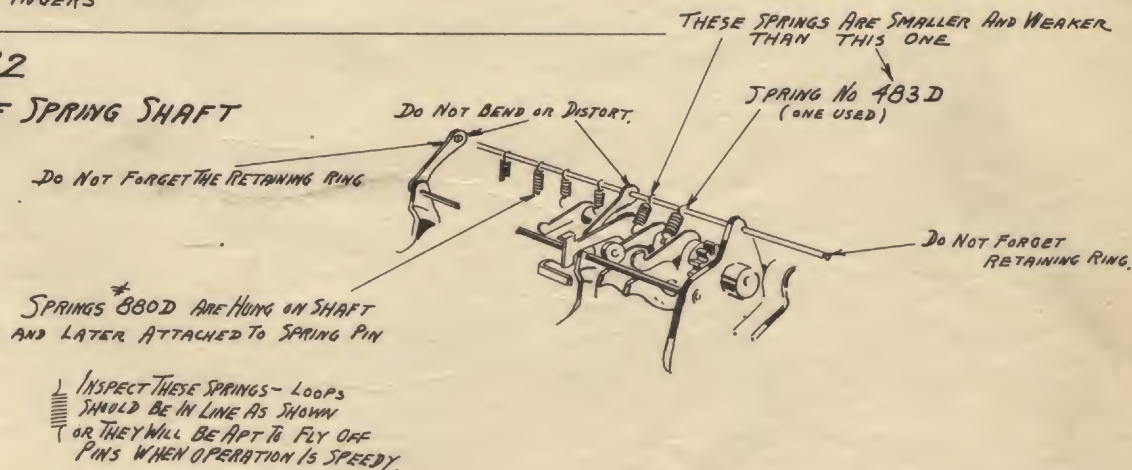 FINGERS
THESE SPRINGS ARE SMALLER AND WEAKER
THAN THIS ONE
2
SPRING SHAFT
DO NOT BEND OR DISTORT.
SPRING NO 483D
(ONE USED)
DO NOT FORGET THE RETAINING RING
DO NOT FORGET
RETAINING RING.
SPRINGS #880D ARE HUNG ON SHAFT
AND LATER ATTACHED TO SPRING PIN
INSPECT THESE SPRINGS - LOOPS
SHOULD BE IN LINE AS SHOWN
OR THEY WILL BE APT TO FLY OFF
PINS WHEN OPERATION IS SPEEDY.